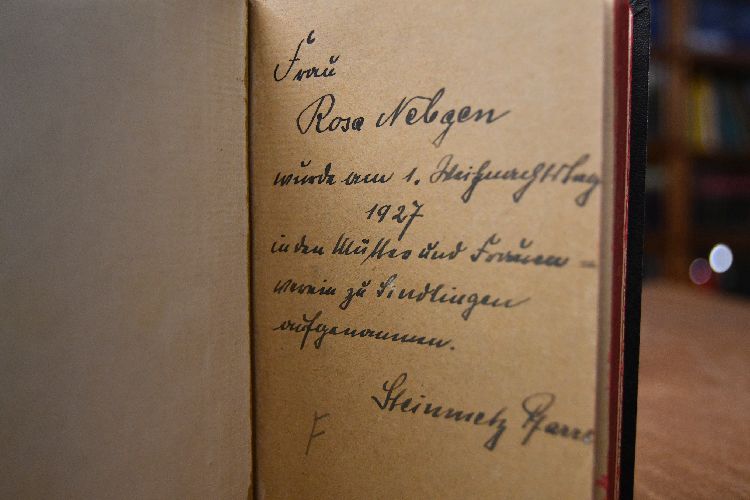 Frau
Rosa Nebgen
wurde am 1. Weihnachtstag
1927
in den Mütter und Frauen-
verein zu Sindlingen
aufgenommen.
Steinmetz Pfarre
F